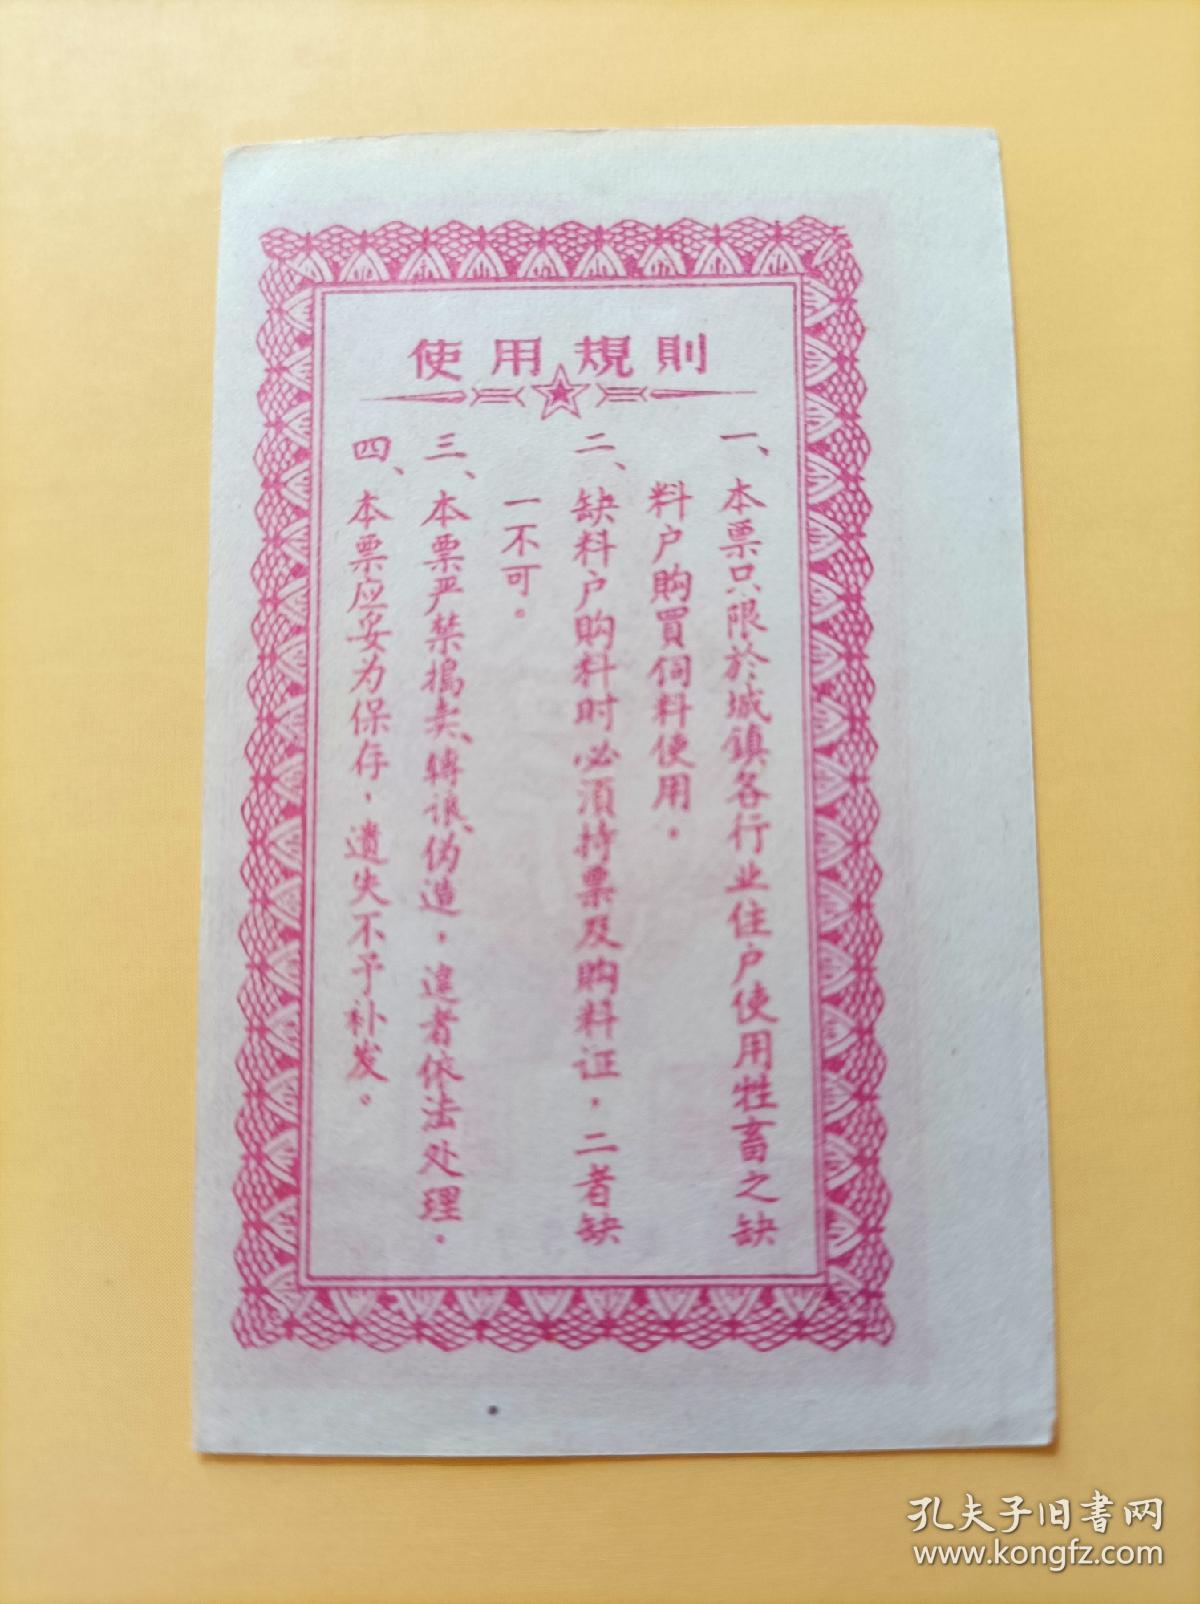 使用規則
一、本票只限於城鎮各行业住户使用牲畜之缺
料户购買饲料使用。
二、缺料户购料时必須持票及购料证，二者缺
一不可。
三、本票严禁搗卖、轉讓、伪造，違者依法处理。
四、本票应妥为保存，遺失不予补发。
孔夫子旧书网
www.kongfz.com